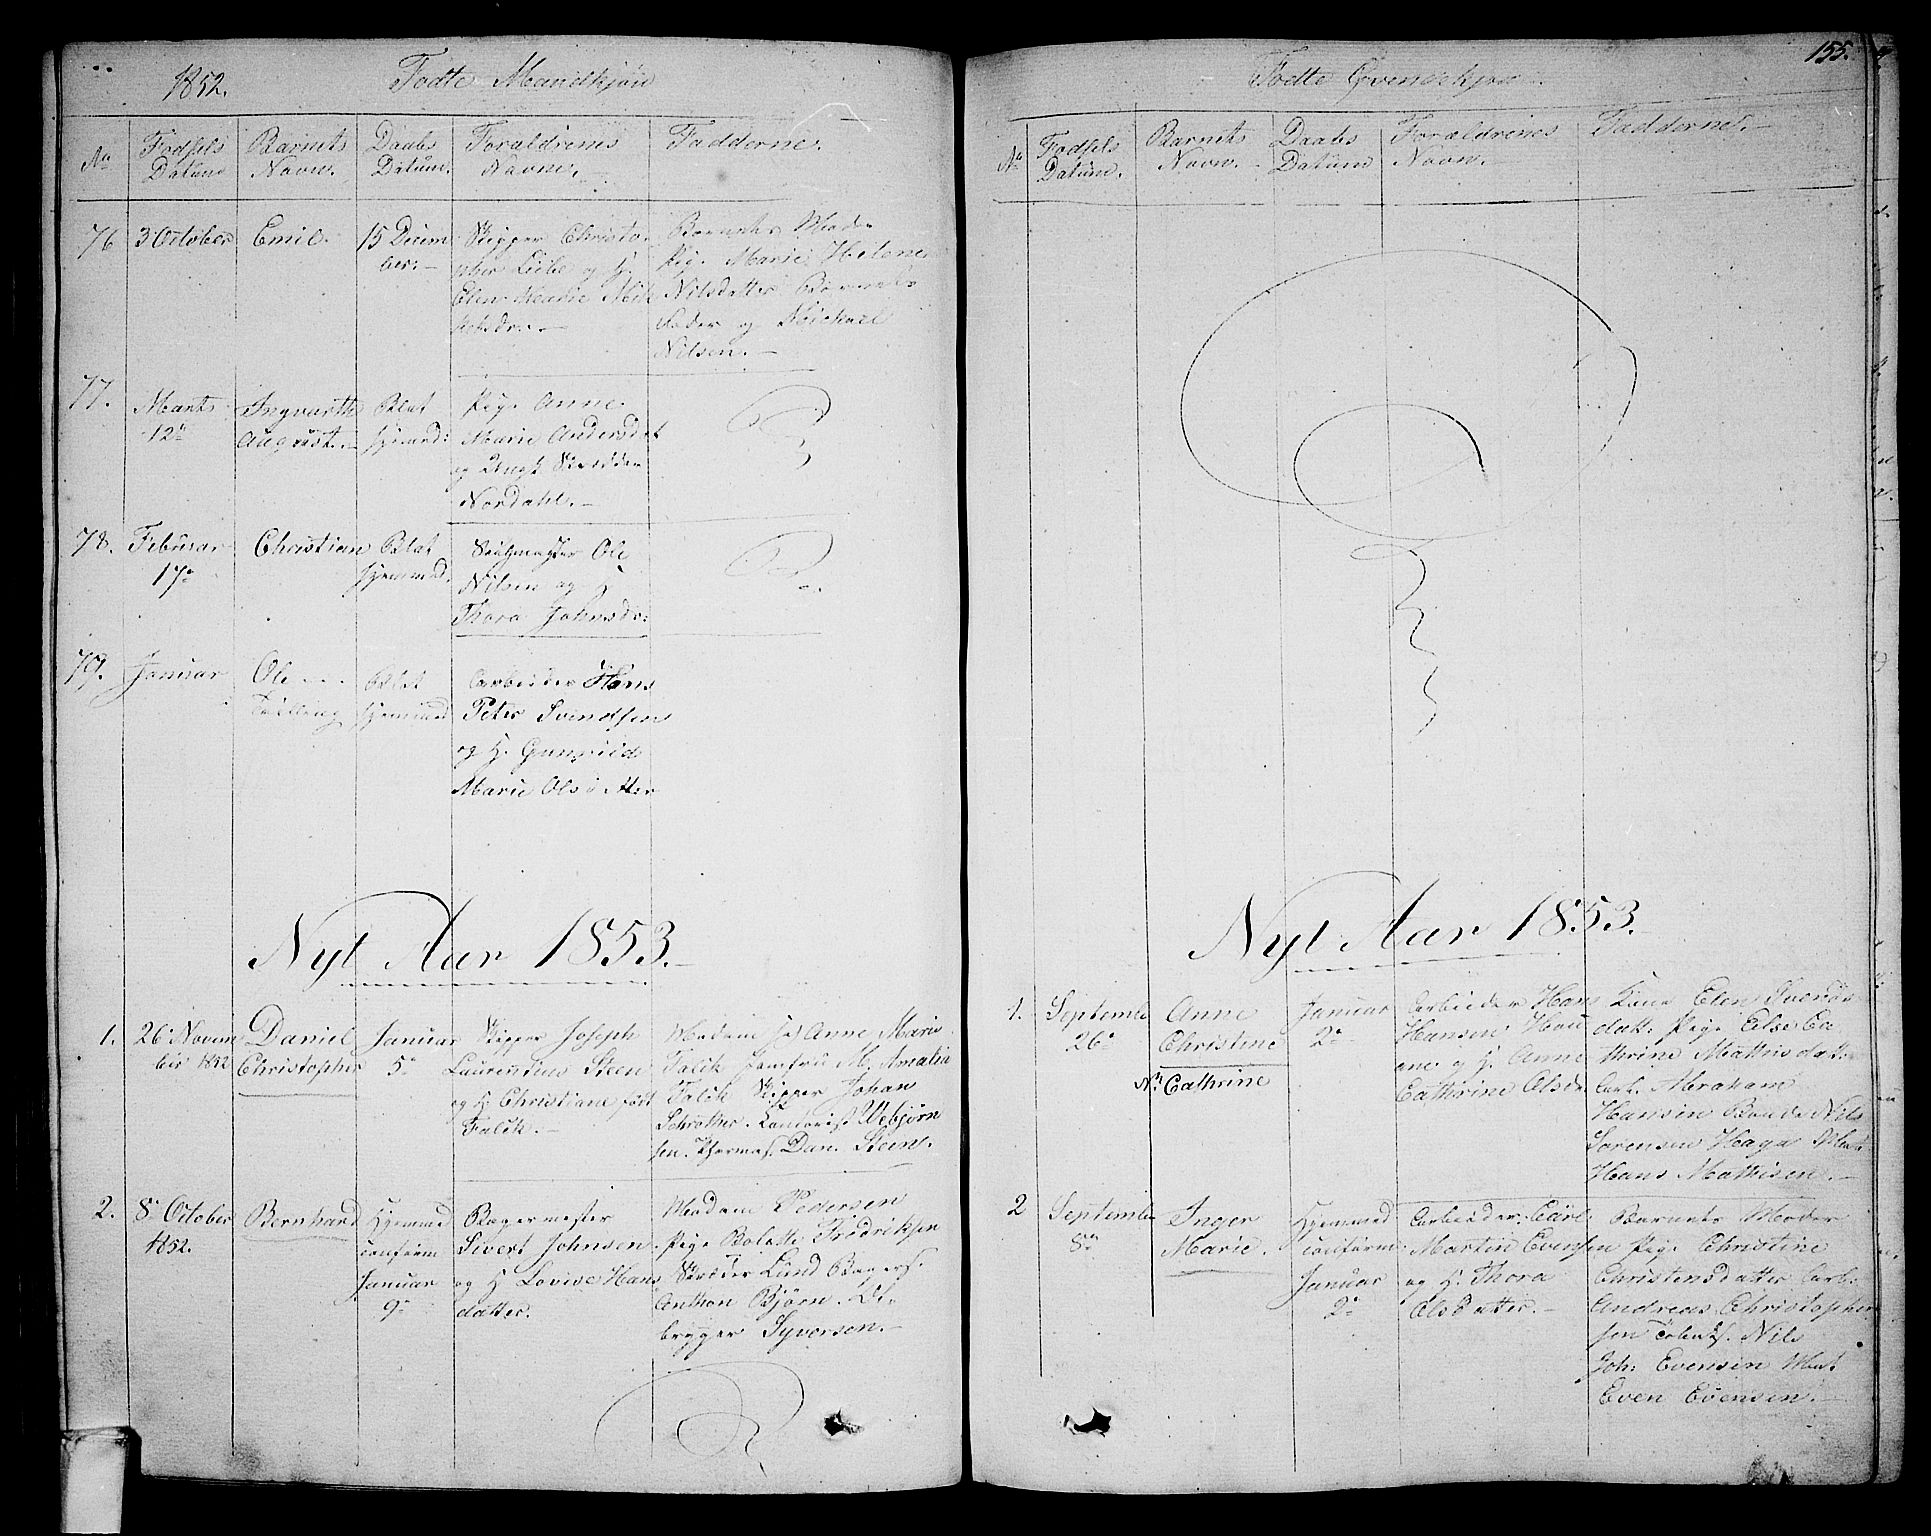 1852.
Fodte Mandkjøn
No
Fodsels
Datum
Barnets
Navn.
Daabs
Datum.
Foraldrenes
Navne.
Fadderne.
76
3 October
Emil.
15 Decem
ber.
Skipper Christo
pher og H.
Elen Marie Mik
kelsdr.
Barnets Mode
Pige Marie Helene
Nilsdatter Barnets
Fader og Michael
Nilsen.
77.
Marts
12te
Ingvarth
August.
Blot
hjemmed:
Pige Anne
Marie Andersdat
og Ungk Skrædder
Nordahl.
78.
Februar
17de
Christian
Blot
hjemmed.
Ole
Nilsen og H
Thora Johnsdr:
79.
Januar
Ole
Tvilling
Blot
hjemmed
Arbeider Hans
Peter Svendsen
og H. Gunnild
Marie Olsdatter
Nyt Aar 1853.
1.
26 Novem
ber 1852
Daniel
Christopher
Januar
5te
Skipper Joseph
Laurentius Steen
og H Christiane født
Falck.
Madam Anne Marie
Falck Jomfru M. Amalia
Falck Skipper Johan
Schrøtter. Kontorist Vebjørn
sen. Dan. Steen.
2.
8 October
1852.
Bernhard
Hjemmed
confirm
Januar
9de
Bager mester
Sivert Johnsen
og H Lovise Hans
datter.
Madam Pedersen
Pige Bolette Fredriksen
Skrædder Lund Bagers.
Anthon Bjørn. Øl
brygger Syversen.
155.
Fodte Qvendekjøn
No
Fodsels
Datum.
Barnets
Navn.
Daabs
Datum
Foraldrenes
Navn.
Fadderne.
Nyt Aar 1853.
1.
Septembe
26de
Anne
Christine
Nn Cathrine
Januar
2de
Arbeider Hans
Hansen Hou
ane og H. Anne
Cathrine Olsdr
Kone Elen Svends
datt. Pige Else Ca
thrine Mathisdatt
Arb. Abraham
Hansen Bonde Nils
Sorensen Haga
Hans Mathisen.
2
Septembe
8de
Inger
Marie.
Hjemmed
confirm:
Januar
2de
Arbeider Carl
Martin Evensen
og H. Thora
Olsdatter.
Barnets Moder
Pige Christine
Christensdatter Arb.
Andreas Christopher
sen Nils
Joh: Evensen Mat
Even Evensen.